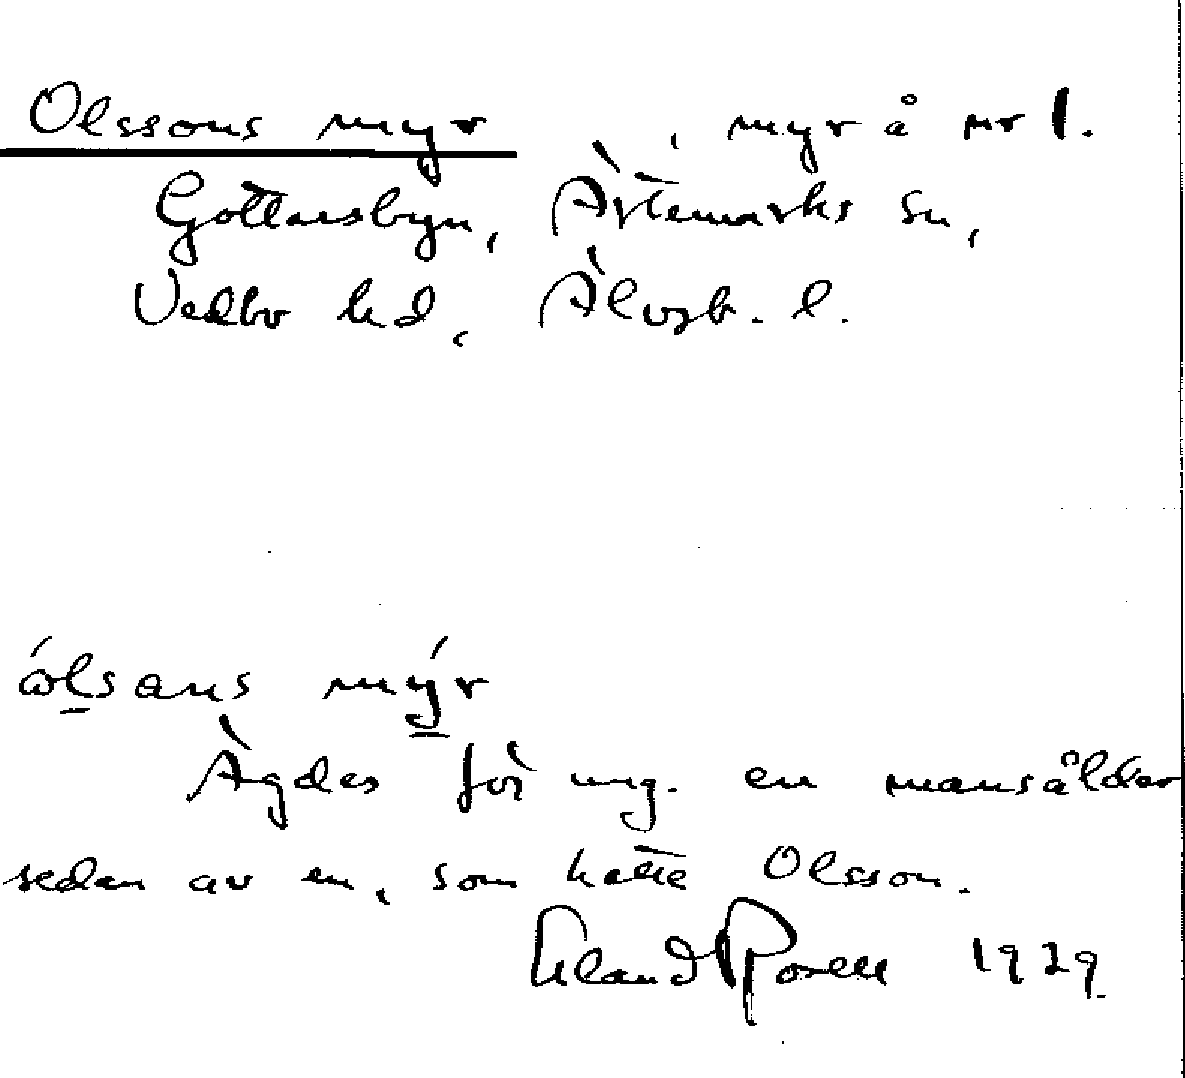 Olssons myr , myr å nr 1.
Gottarsbyn, Ärtemarks sn,
Vedbo hd, Älvsb. l.
ólsans mýr
Ägdes för ung. en mansålder
sedan av en, som hette Olsson.
Erland Rosell 1929.